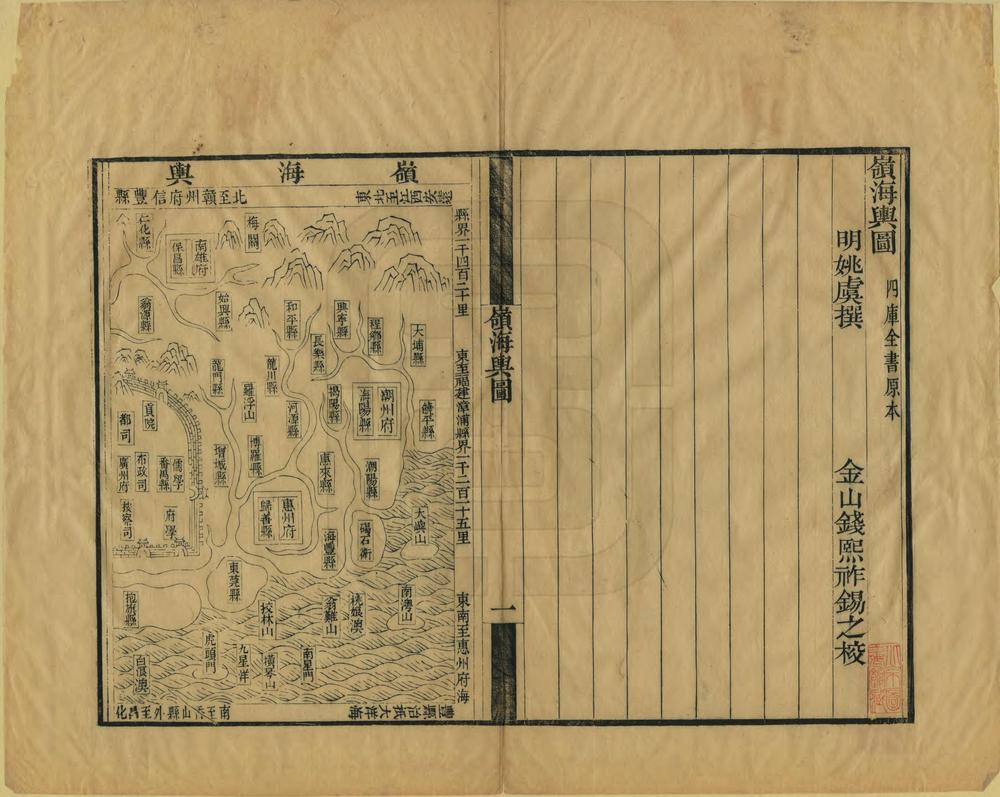 嶺海輿圖
四庫全書原本
明姚虞撰
金山錢熙祚錫之校
嶺海輿圖
一
嶺海輿
北至贛州府信豐縣
縣界一千四百二十里
東至福建漳浦縣界一千二百二十五里
東南至惠州府海
豐縣治抵大洋海
仁化縣
南雄府
保昌縣
梅關
翁源縣
始興縣
和平縣
興寧縣
程鄉縣
大埔縣
長樂縣
龍門縣
龍川縣
羅浮山
河源縣
揭陽縣
潮州府
海陽縣
饒平縣
貢院
都司
博羅縣
增城縣
惠來縣
潮陽縣
儒學
番禺縣
布政司
廣州府
按察司
府學
惠州府
歸善縣
海豐縣
碣石衛
東莞縣
虎頭門
九星洋
南星門
白浪澳